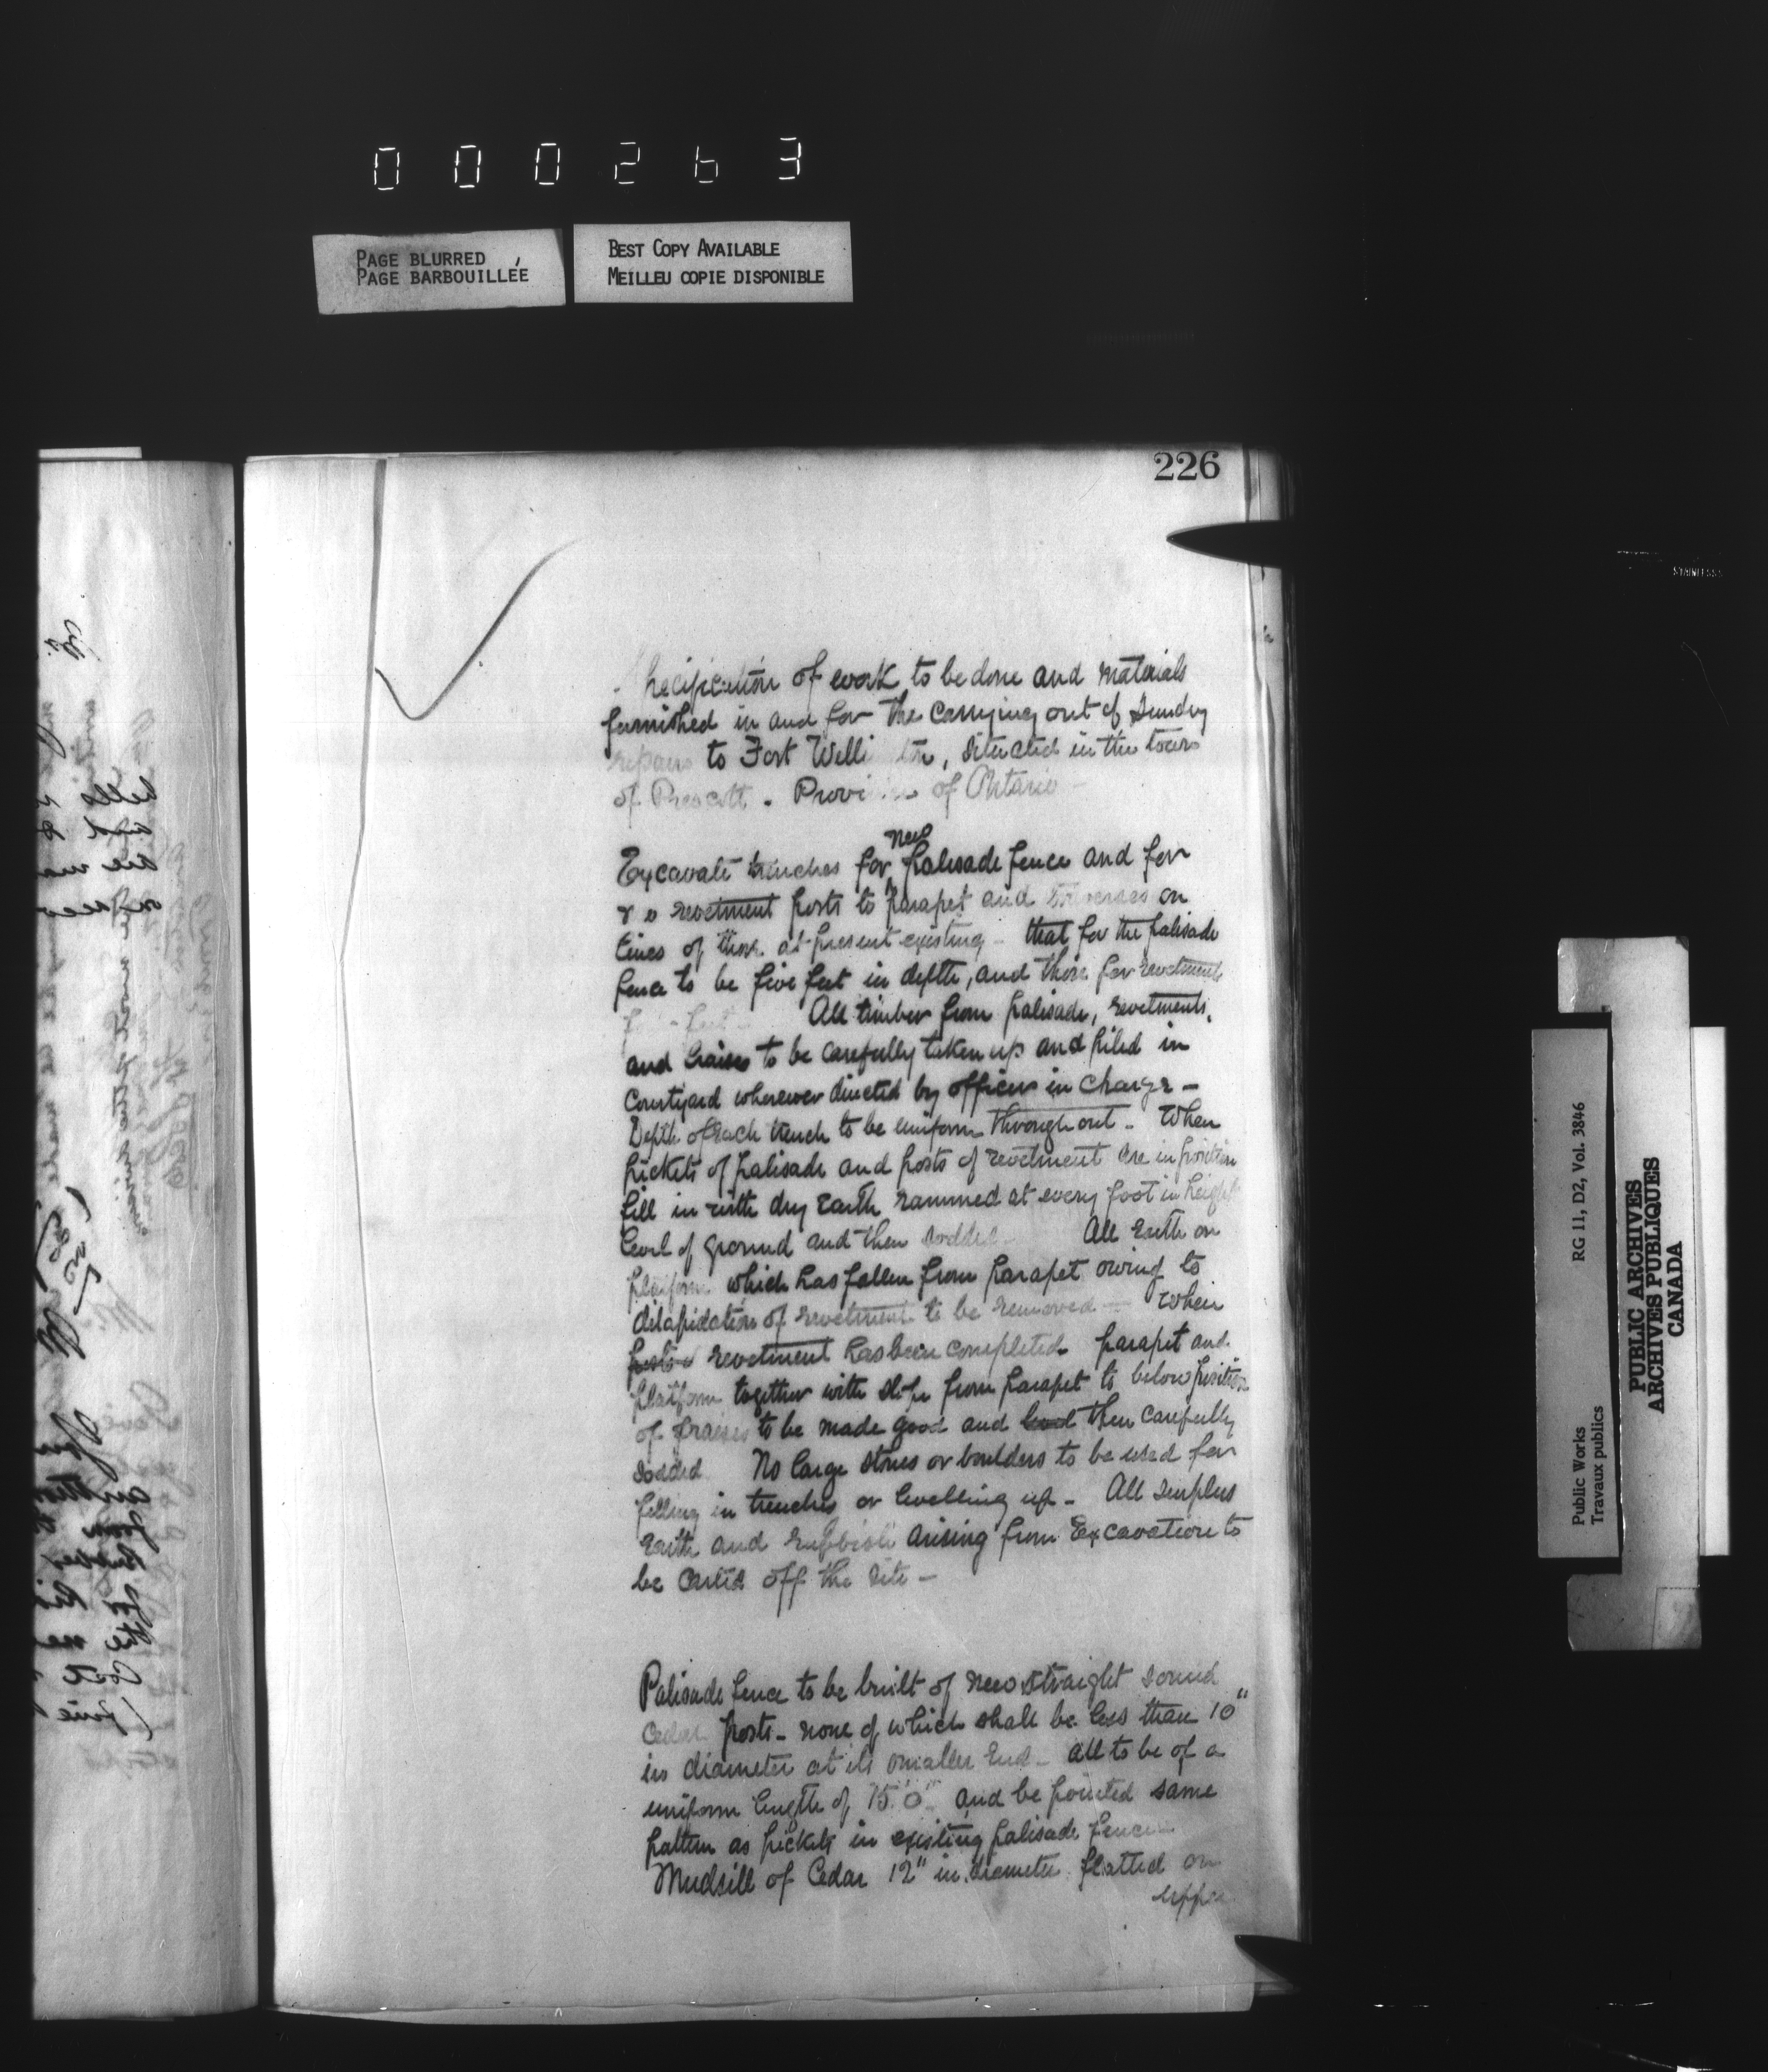 000263
PAGE BLURRED
PAGE BARBOUILLÉE
BEST COPY AVAILABLE
MEILLEU COPIE DISPONIBLE
226
Specification of work to be done and materials
furnished in and for the carrying out of sundry
repairs to Fort Welli tn, situated in the town
of Prescott. Province of Ontario -
Excavate trenches for new palisade fence and for
revetment posts to parapet and traverses on
lines of those at present existing - that for the palisade
fence to be five feet in depth, and those for revetments
feet - All timber from palisade, revetments,
and fraises to be carefully taken up and piled in
Courtyard wherever directed by officer in charge -
Depth of each trench to be uniform throughout - When
pickets of palisade and posts of revetment are in position
fill in with dry earth rammed at every foot in height
level of ground and then sodded - All Earth on
platform which has fallen from parapet owing to
dilapidation of revetment to be removed - When
posts revetment has been completed parapet and
platform together with slope from parapet to below position
of fraises to be made good and level then carefully
sodded No large stones or boulders to be used for
filling in trenches or levelling up - All surplus
Earth and rubbish arising from Excavation to
be carted off the site -
Palisade fence to be built of new straight sound
Cedar posts - none of which shall be less than 10"
in diameter at its smaller End - all to be of a
uniform length of 15'.0" and be pointed same
pattern as pickets in existing palisade fence -
Mudsill of Cedar 12" in diameter flatted on
upper
STAINLESS
Public Works
Travaux publics
RG 11, D2, Vol. 3846
PUBLIC ARCHIVES
ARCHIVES PUBLIQUES
CANADA